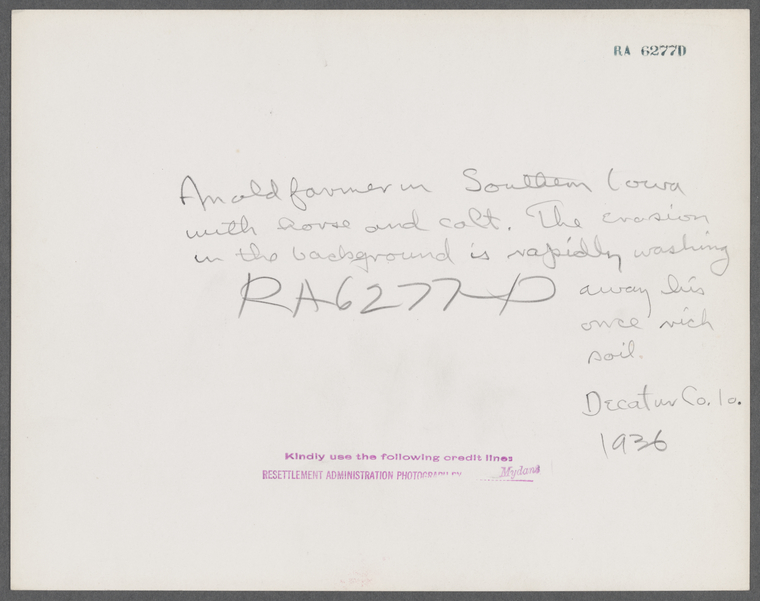 RA 6277D
An old farmer in Southern Iowa
with horse and colt. The erosion
in the background is rapidly washing
away his
once rich
soil.
RA 6277-D
Decatur Co. Io.
1936
Kindly use the following credit line:
RESETTLEMENT ADMINISTRATION PHOTOGRAPH BY Mydans